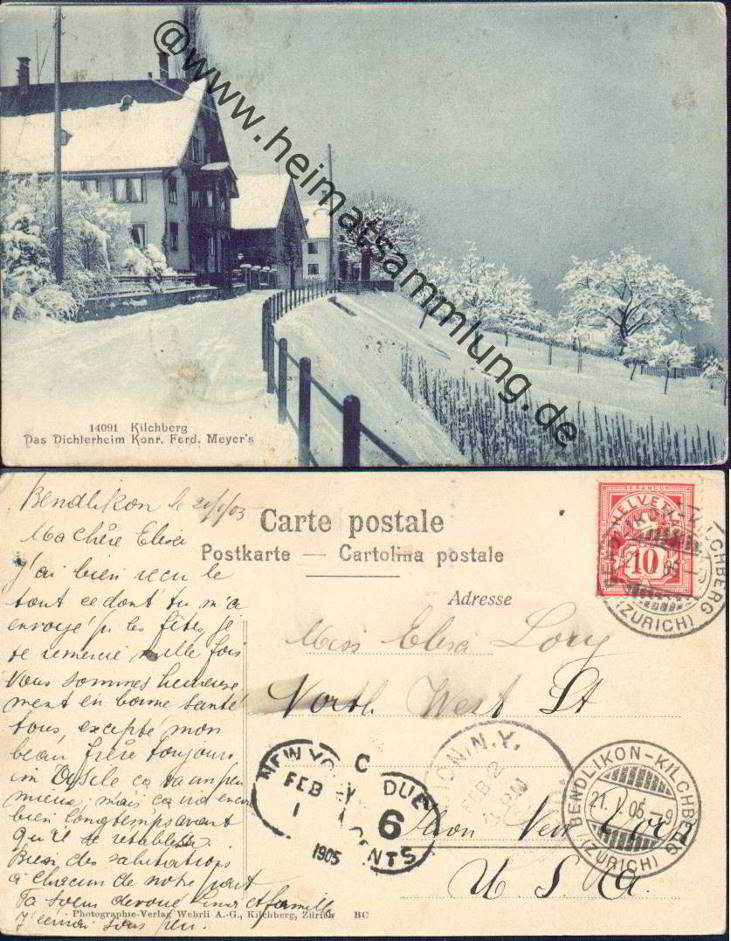 @www.heimatsammlung.de
14091 Kilchberg
Das Dichterheim Konr. Ferd. Meyer's
Carte postale
Postkarte — Cartolina postale
Adresse
HELVETIA
FRANCO
10
BENDLIKON-KILCHBERG
(ZÜRICH)
Bendlikon le
Ma chère Elisa
J'ai bien reçu le
tout ce dont tu m'a
envoyé p. les fêtes je
te remercie mille fois
Nous sommes heureuse
ment en bonne santé
tous, excepté mon
beau frère toujours
ça va un peu
mieux, mais ça va encore
bien longtemps avant
qu'il se rétablisse
des salutations
à chacun de notre part
Ta soeur et famille
Miss Elisa
North West St
Lyon New York
U. S. A.
NEW YORK
FEB
1
1905
DUE
6
CENTS
N.Y.
FEB 2
BENDLIKON-KILCHBERG
21. I. 05.-9
(ZÜRICH)
Photographie-Verlag Wehrli A.-G., Kilchberg, Zürich BC